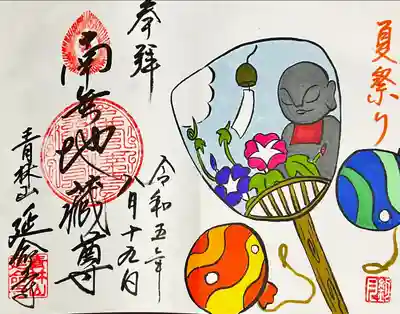 夏祭り
奉拝
令和五年
八月十九日
南無地蔵尊
青林山
延命寺